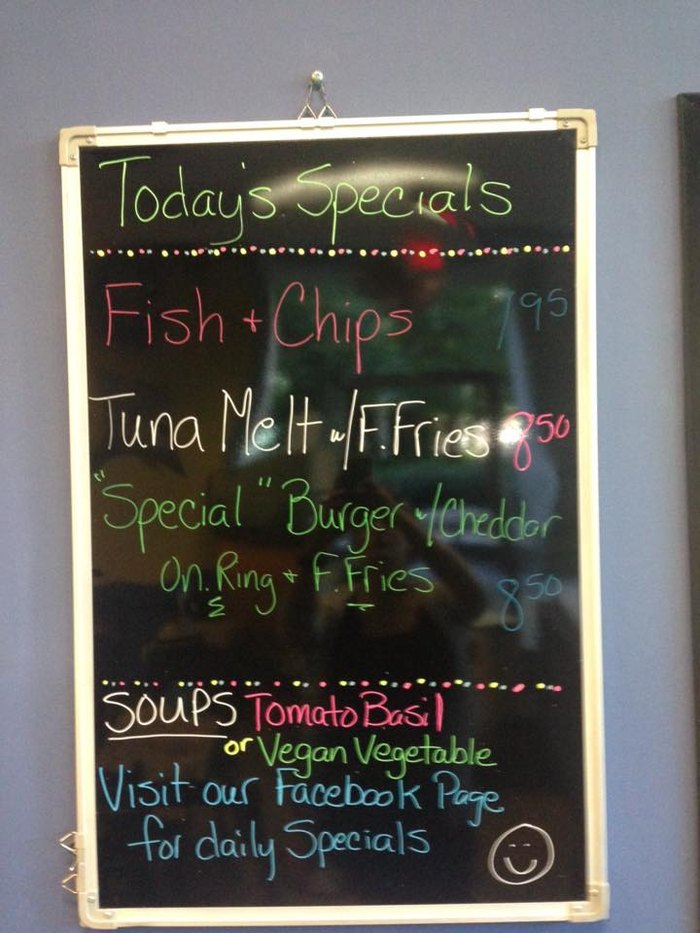 Today's Specials
Fish + Chips 795
Tuna Melt w/F.Fries 850
"Special" Burger w/Cheddar
On.Ring + F.Fries 850
SOUPS Tomato Basil
or Vegan Vegetable
Visit our Facebook Page
for daily Specials